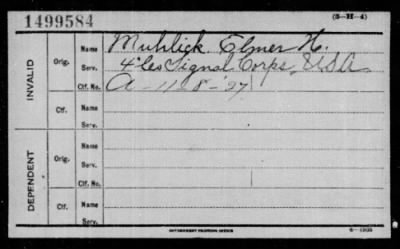 1499584
(5—H—4)
INVALID
Orig.
Name Muhlick, Elmer H.
Serv. 4" Co Signal Corps, USA
Ctf. No. A - 11-8-'27
Ctf.
Name
Serv.
DEPENDENT
Orig.
Name
Serv.
Ctf. No.
Ctf.
Name
Serv.
GOVERNMENT PRINTING OFFICE